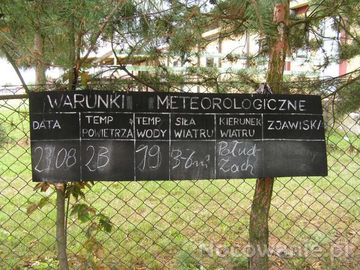 WARUNKI METEOROLOGICZNE
DATA TEMP POWIETRZA TEMP WODY SIŁA WIATRU KIERUNEK WIATRU ZJAWISKA
23 19 3-6m/s Połud Zach
Nocowanie.pl